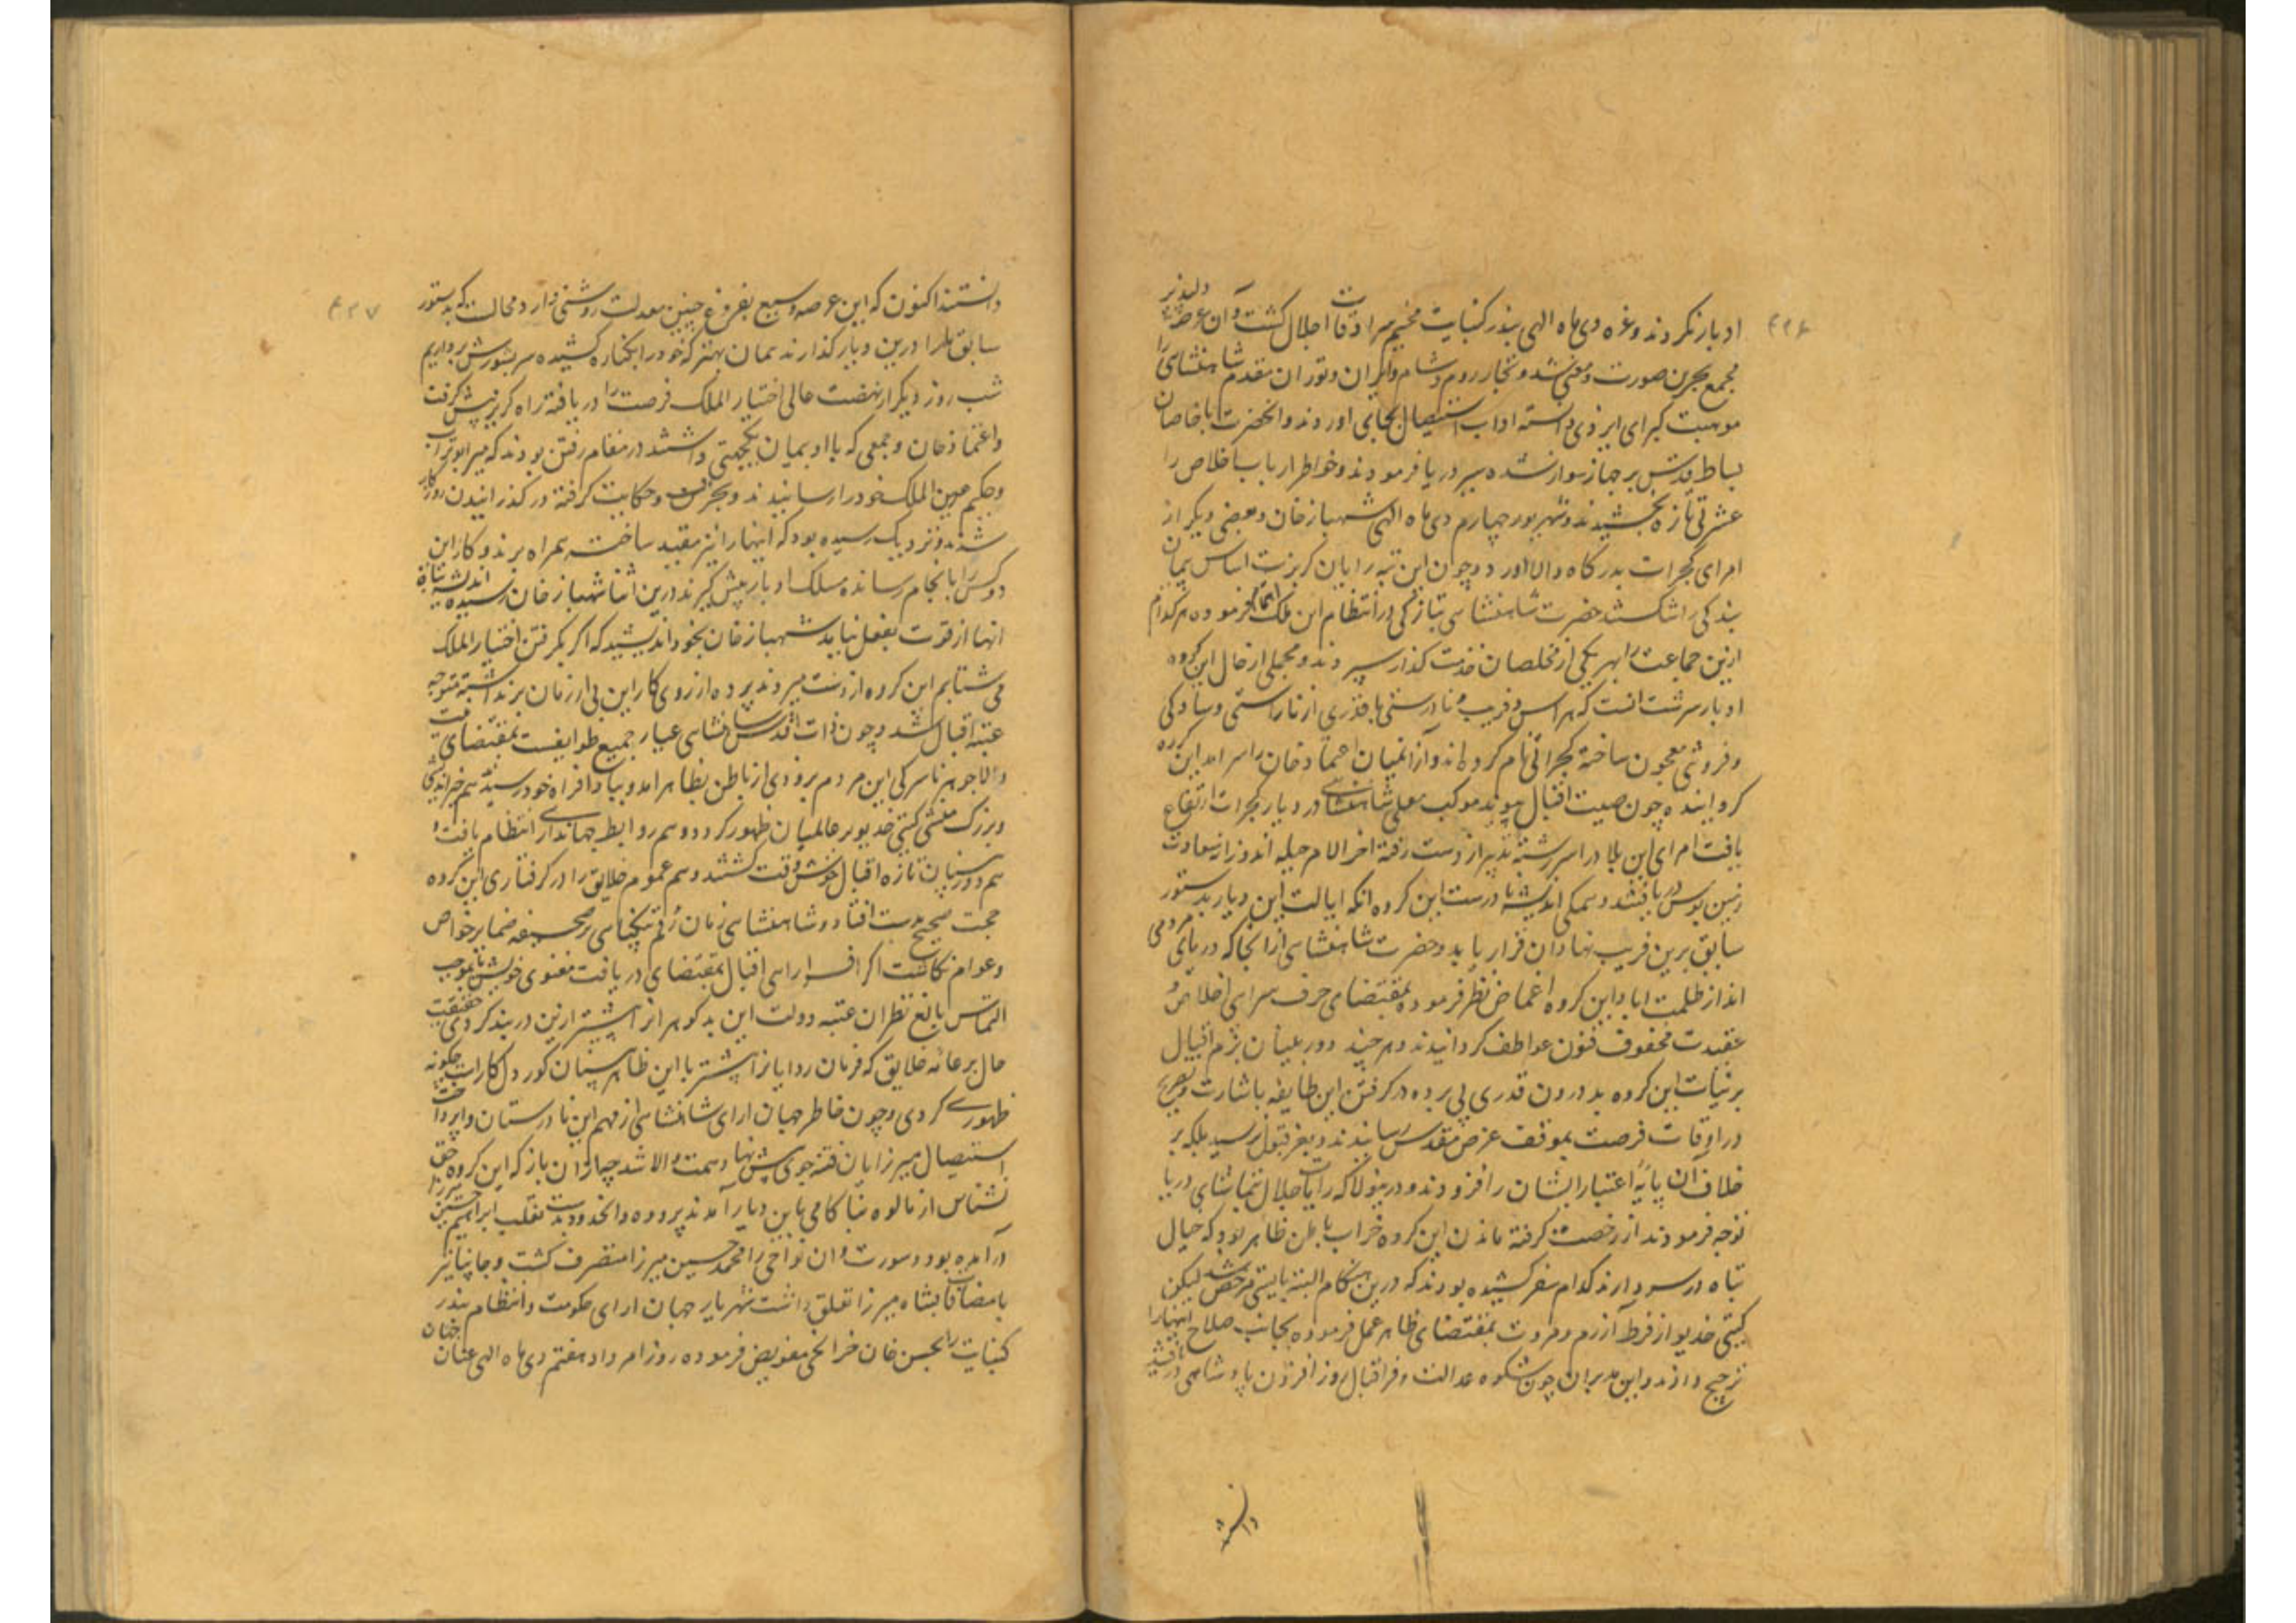 ۴۲۶
ادبار نکردند و غره دی ماه الهی بندر کنبایت مخیم سرادقات اجلال گشت و آن عرصه دلپذیر
مجمع بحرین صورت و معنی شد و تجار روم و شام و ایران و توران مقدم شاهنشاهی را
موهبت کبرای ایزدی دانسته اداب استیصال بجای اوردند و انحضرت با خاصان
بساط قدس بر جهاز سوار شده سیر دریا فرمودند و خواطر ارباب اخلاص را
عشرتی تازه بخشیدند و شهریور چهارم دی ماه الهی شهباز خان و بعضی دیگر از
امرای گجرات بدرگاه والا اورد و چون این تبه رایان گریزنده اساس پیمان
بندگی را شکستند حضرت شاهنشاهی بتازگی در انتظام این ملک اهتمام فرموده هرکدام
ازین جماعت را بهر یکی از مخلصان خدمت گذار سپردند و مجملی از حال این گروه
ادبار سرشت انست که هراس و فریب و نادرستی با قدری از ناراستی و سادگی
و فروتنی معجون ساخته گجراتی نام کرده اند و از انمیان اعتماد خان را سر امد این گروه
گردانیده چون صیت اقبال پیوند موکب معلی شاهنشاهی در دیار گجرات ارتفاع
یافت امرای این بلاد را سررشته تدبیر از دست رفته اخر الامر حیله اندوز از سعادت
زمین بوس دریافتند و همگی اندیشه نادرست این گروه انکه ایالت این دیار بدستور
سابق برین فریب نهادان قرار یابد و حضرت شاهنشاهی از انجا که دریای مردمی
اند از ظلمت اباد این گروه اغماض نظر فرموده بمقتضای حرف سرای اخلاص و
عقیدت محفوف فنون عواطف گردانیدند و هر چند دوربینان بزم اقبال
بر نیات این گروه بد درون قدری پی برده در گرفتن این طایفه باشارت و تصریح
در اوقات فرصت بموقف عرض مقدس رسانیدند و بعز قبول نرسید بلکه بر
خلاف آن پایهٔ اعتبار ایشان را افزودند و درینولا که رایات جلال بتماشای دریا
توجه فرمودند از رخصت گرفته ماندن این گروه خراب باطن ظاهر بود که خیال
تباه در سر دارند کدام سفر کشیده بودند که درین هنگام البته بایستی مرخص شد لیکن
گیتی خدیو از فرط آزرم و مروت بمقتضای ظاهر عمل فرموده بجانب صلاح اینها را
ترجیح دادند و این مدبران چون شکوه عدالت و فر اقبال روز افزون پادشاهی دریافتند
دانستند
۴۲۷
دانستند اکنون که این عرصه وسیع بفروغ چنین معدلت روشنی دارد محالست که بدستور
سابق ملرا درین دیار گذارند همان بهتر که خود را بکناره کشیده سر بشورش برداریم
شب روز دیگر از نهضت عالی اختیار الملک فرصت را دریافته راه گریز پیش گرفت
و اعتماد خان و جمعی که با او بمیان یکجهتی داشتند در مقام رفتن بودند که میر ابو تراب
و حکیم عین الملک خود را رسانیدند و بحرف و حکایت گرفته در گذرانیدن روزگار
شدند و نزدیک رسیده بود که اینها را نیز مقید ساخته همراه برند و کار این
دو کس را بانجام رسانده مسلک ادبار پیش گیرند درین اثنا شهباز خان رسیده اندیشه تباه
انها از قوت بفعل نیامد شهباز خان بخود اندیشید که اگر بگرفتن اختیار الملک
می شتابم این گروه از دست میروند پرده از روی کار این بی ارزمان برنداشته متوجه
عتبه اقبال شد و چون ذات اقدس شاهنشاهی عیار جمیع طوایفست بمقتضای نیت
والا جوهر ناسرگی این مردم بزودی از باطن بظاهر امد و بپادافراه خود رسیدند هم خیر اندیشی
و بزرگ منشی گیتی خدیو بر عالمیان ظهور کرد و هم روابط جهانداری انتظام یافت و
هم دوربینان تازه اقبال خوش وقت گشتند و هم عموم خلایق را در گرفتاری این گروه
حجت صحیح بدست افتاد و شاهنشاهی زمان رقم نیکنامی بر صحیفه ضمایر خواص
و عوام نگاشت اگر افسر ارای اقبال بمقتضای دریافت معنوی خویش یا بموجب
التماس بالغ نظران عتبه دولت این بدگوهرانرا پیشتر ازین دربند کردی حقیقت
حال بر عامه خلایق که فرمان روایانرا پیشتر با این ظاهر پرستان کوردل کارست چگونه
ظهوری کردی و چون خاطر جهان ارای شاهنشاهی از مهم این نادرستان واپرداخت
استیصال میرزایان فتنه جوی پیش نهاد همت والا شد چه ازان باز که این گروه حق
نشناس از مالوه بناکامی باین دیار آمدند بروده و انحدود بدست تغلب ابراهیم حسین میرزا
درآمده بود و سورت و ان نواحی را محمد حسین میرزا متصرف گشت و جانپانیر
بامضافات بشاه میرزا تعلق داشت شهریار جهان ارای حکومت و انتظام بندر
کنبایت را بحسن خان خزانچی مفوض فرموده روز امرداد هفتم دی ماه الهی عنان جهان